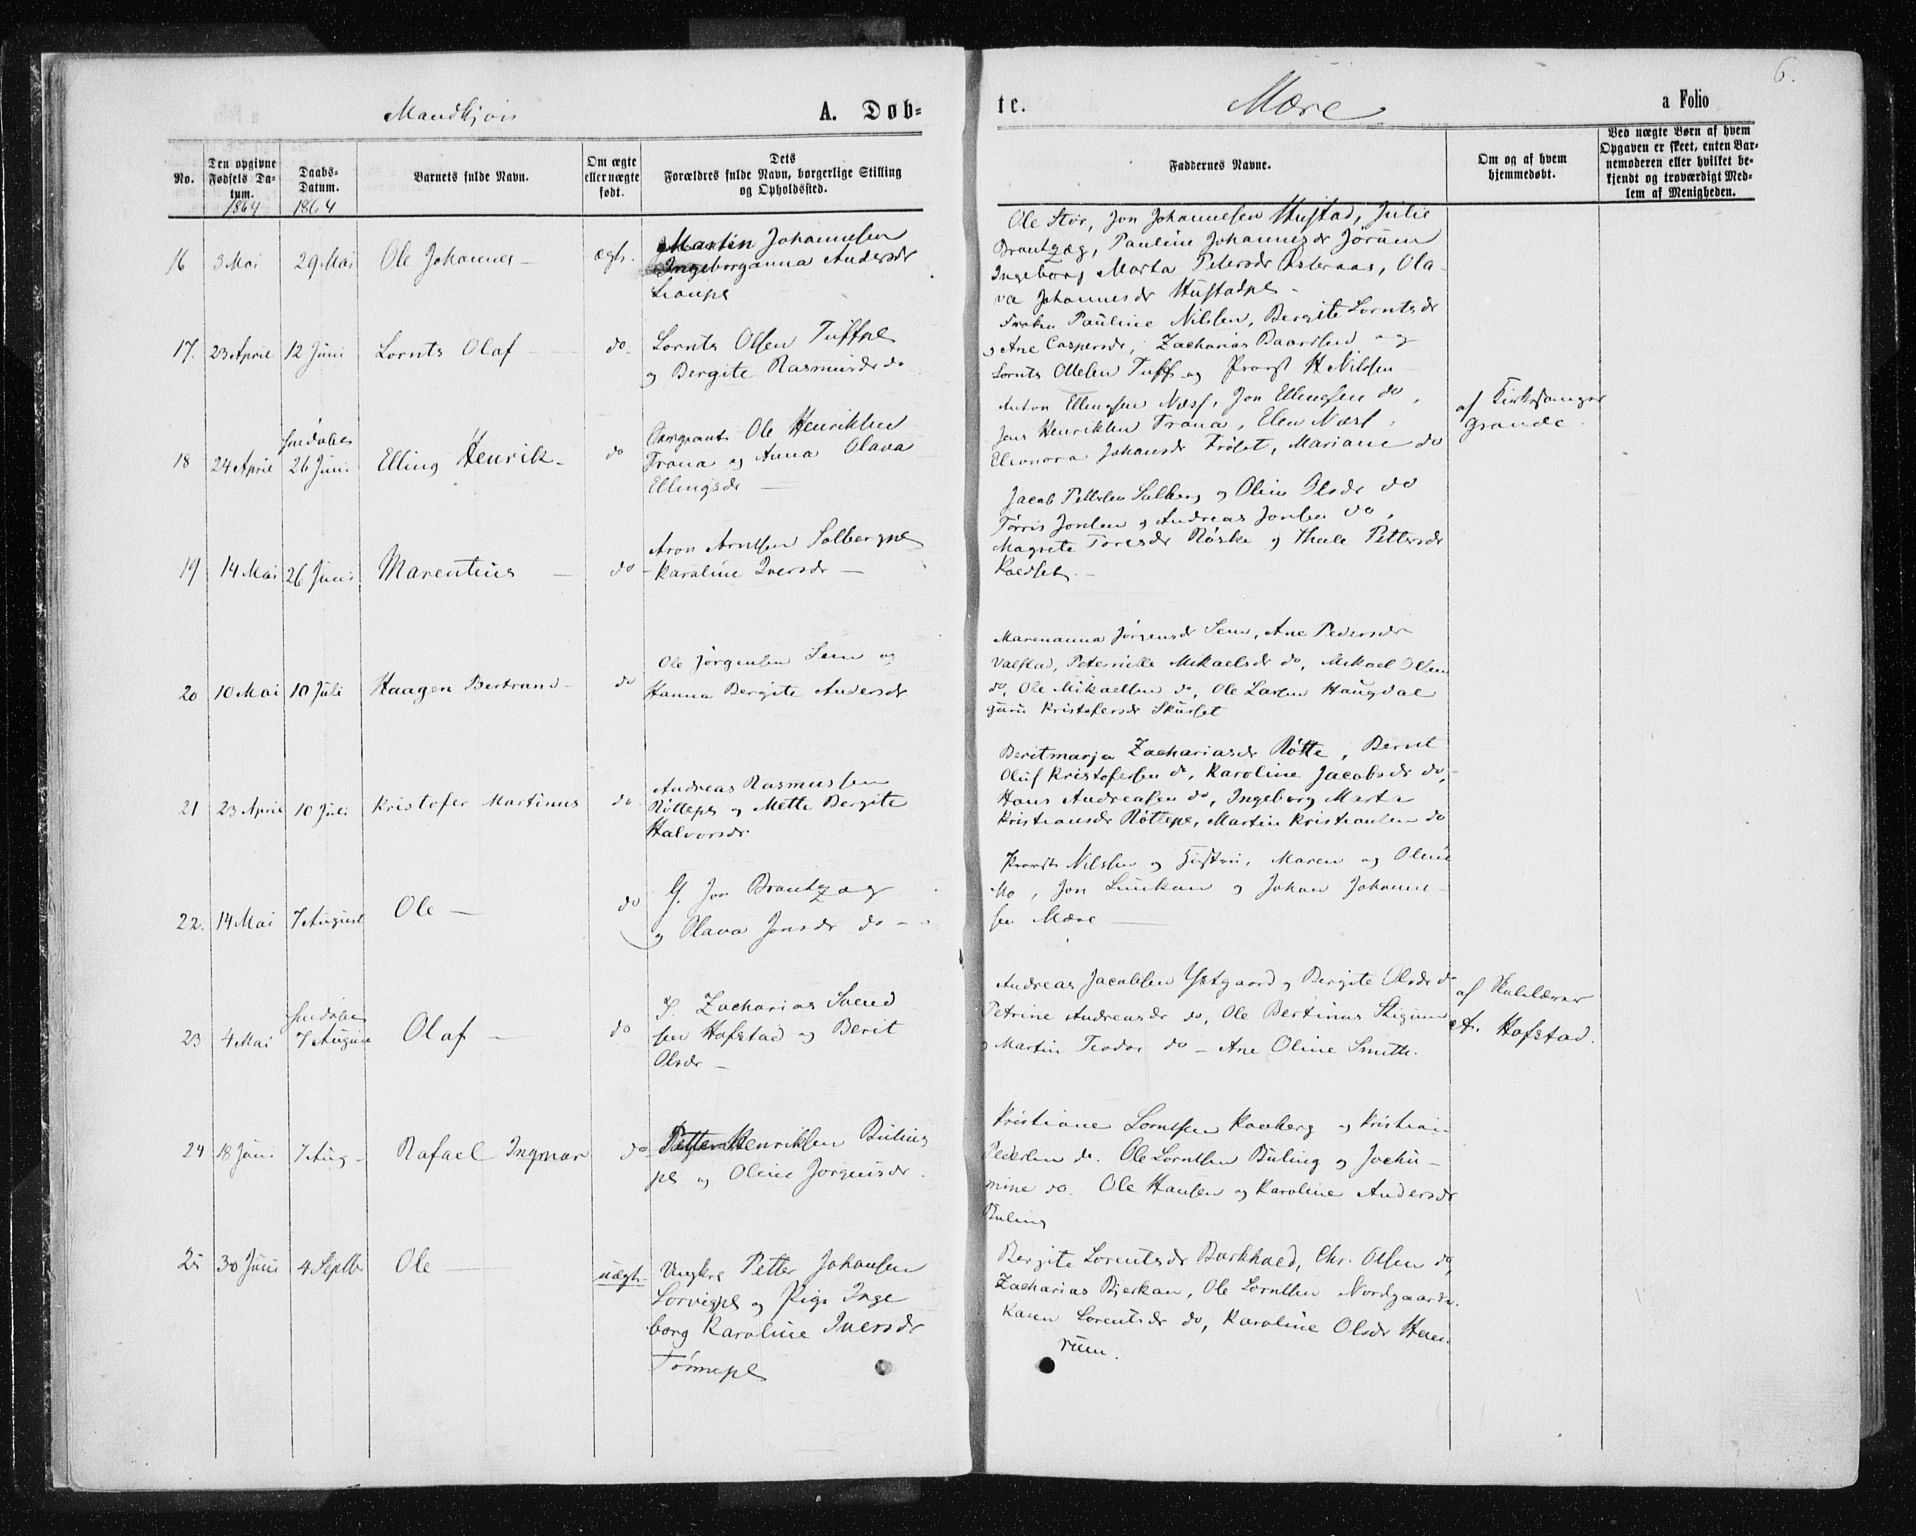 6.
Mandkjøn
A. Døb-
te.
Mære
a Folio
No.
Den opgivne Fødsels Da-tum.
Daabs-Datum.
Barnets fulde Navn.
Om ægte eller uægte født.
Dets Forældres fulde Navn, borgerlige Stilling og Opholdssted.
Faddernes Navne.
Om og af hvem hjemmedøbt.
Ved uægte Børn af hvem Opgaven er skeet, enten Bar-nemoderen eller hvilket be-kjendt og troværdigt Med-lem af Menigheden.
1864 1864
16 3 Mai 29 Mai Ole Johannes ægte.
Martin Johannesen
Ingeborganna Andersdr
Ole Stor, Jon Johannesen Hustad, Julie
Brantzæg, Pauline Johannesdr Jørum
Ingeborg Marta Petersdr Østeraas, Ola-
va Johannesdr Hustadpl
17. 23 April 12 Juni Lornts Olaf do
Lornts Olsen Tuffpl
og Bergite Rasmusdr do
Frøken Pauline Nilssen, Bergite Lorntsdr
og Ane Caspersdr, Zacharias Baardsen og
Lornts Olelsen Tuff og Provst H Nilssen
18 24 April hmdøbt 26 Juni Elling Henrik do
Sergeant Ole Henriksen
Trana og Anna Olava
Ellingsdr
Anton Ellingsen Næss, Jon Ellingsen do,
Jens Henriksen Trana, Elen Næss,
Eleonora Johansdr Frøset, Mariane do
af Kirkesanger
Grande.
19 14 Mai 26 Juni Marentius do
Aron Arntsen Solbergpl
Karoline Iversdr
Jacob Pettersen Solberg og Oline Olsdr do
Tørris Jonsen og Andreas Jonsen do,
Magrete Toresdr Røske og Thale Pettersdr
Kaldset.
20 10 Mai 10 Juli Haagen Bertrand do
Ole Jørgensen Sem og
Hanna Bergite Andersdr
Marenanna Jørgensdr Sem, Ane Pedersdr
Valstad, Peternille Mikaelsdr do, Mikael Olsen
do, Ole Mikaelsen do, Ole Larsen Haugdal
Guru Kristofersdr Skurset
21 23 April 10 Juli Kristofer Martinus do
Andreas Rasmussen
Røttepl og Mette Bergite
Halvorsdr
Beritmarja Zachariasdr Røtte, Bernt
Oluf Kristofersen do, Karoline Jacobsdr do,
Hans Andreasen do, Ingeborg Marta
Kristiansdr Røttepl, Martin Kristiansen do
22. 14 Mai 7 August Ole do
G. Jon Brantzæg
og Olava Jonsdr do
Provst Nilssen og Hustru, Maren og Oline
Mo, Jon Lunkan og Johan Johanne-
sen Mære
23 4 Mai hmdøbt 7 August Olaf do
P. Zacharias Svend
sen Hofstad og Berit
Olsdr
Andreas Jacobsen Ystgaard og Bergite Olsdr do
Petrine Andreasdr do, Ole Bertinus Stigum
og Martin Teodor do – Ane Oline Smith.
af Skolelærer
A. Hofstad.
24 18 Juni 7 Aug Rafael Ingmar do
Petter Henriksen Buling
pl og Oline Jørgensdr.
Kristiane Lorntsen Kaaberg og Kristian
Pedersen do. Ole Lorntsen Buling og Jochu-
mine do. Ole Hansen og Karoline Andersdr
Buling
25 30 Juni 4 Septbr Ole uægte
Ungkrl Petter Johansen
Sorvigpl og Pige Inge
borg Karoline Iversdr
Tømmepl
Bergite Lorentsdr Barkhald, Chr. Olsen do,
Zacharias Bjerkan, Ole Lorntsen Nordgaard.
Karen Lorentsdr do, Karoline Olsdr Hem-
rum.